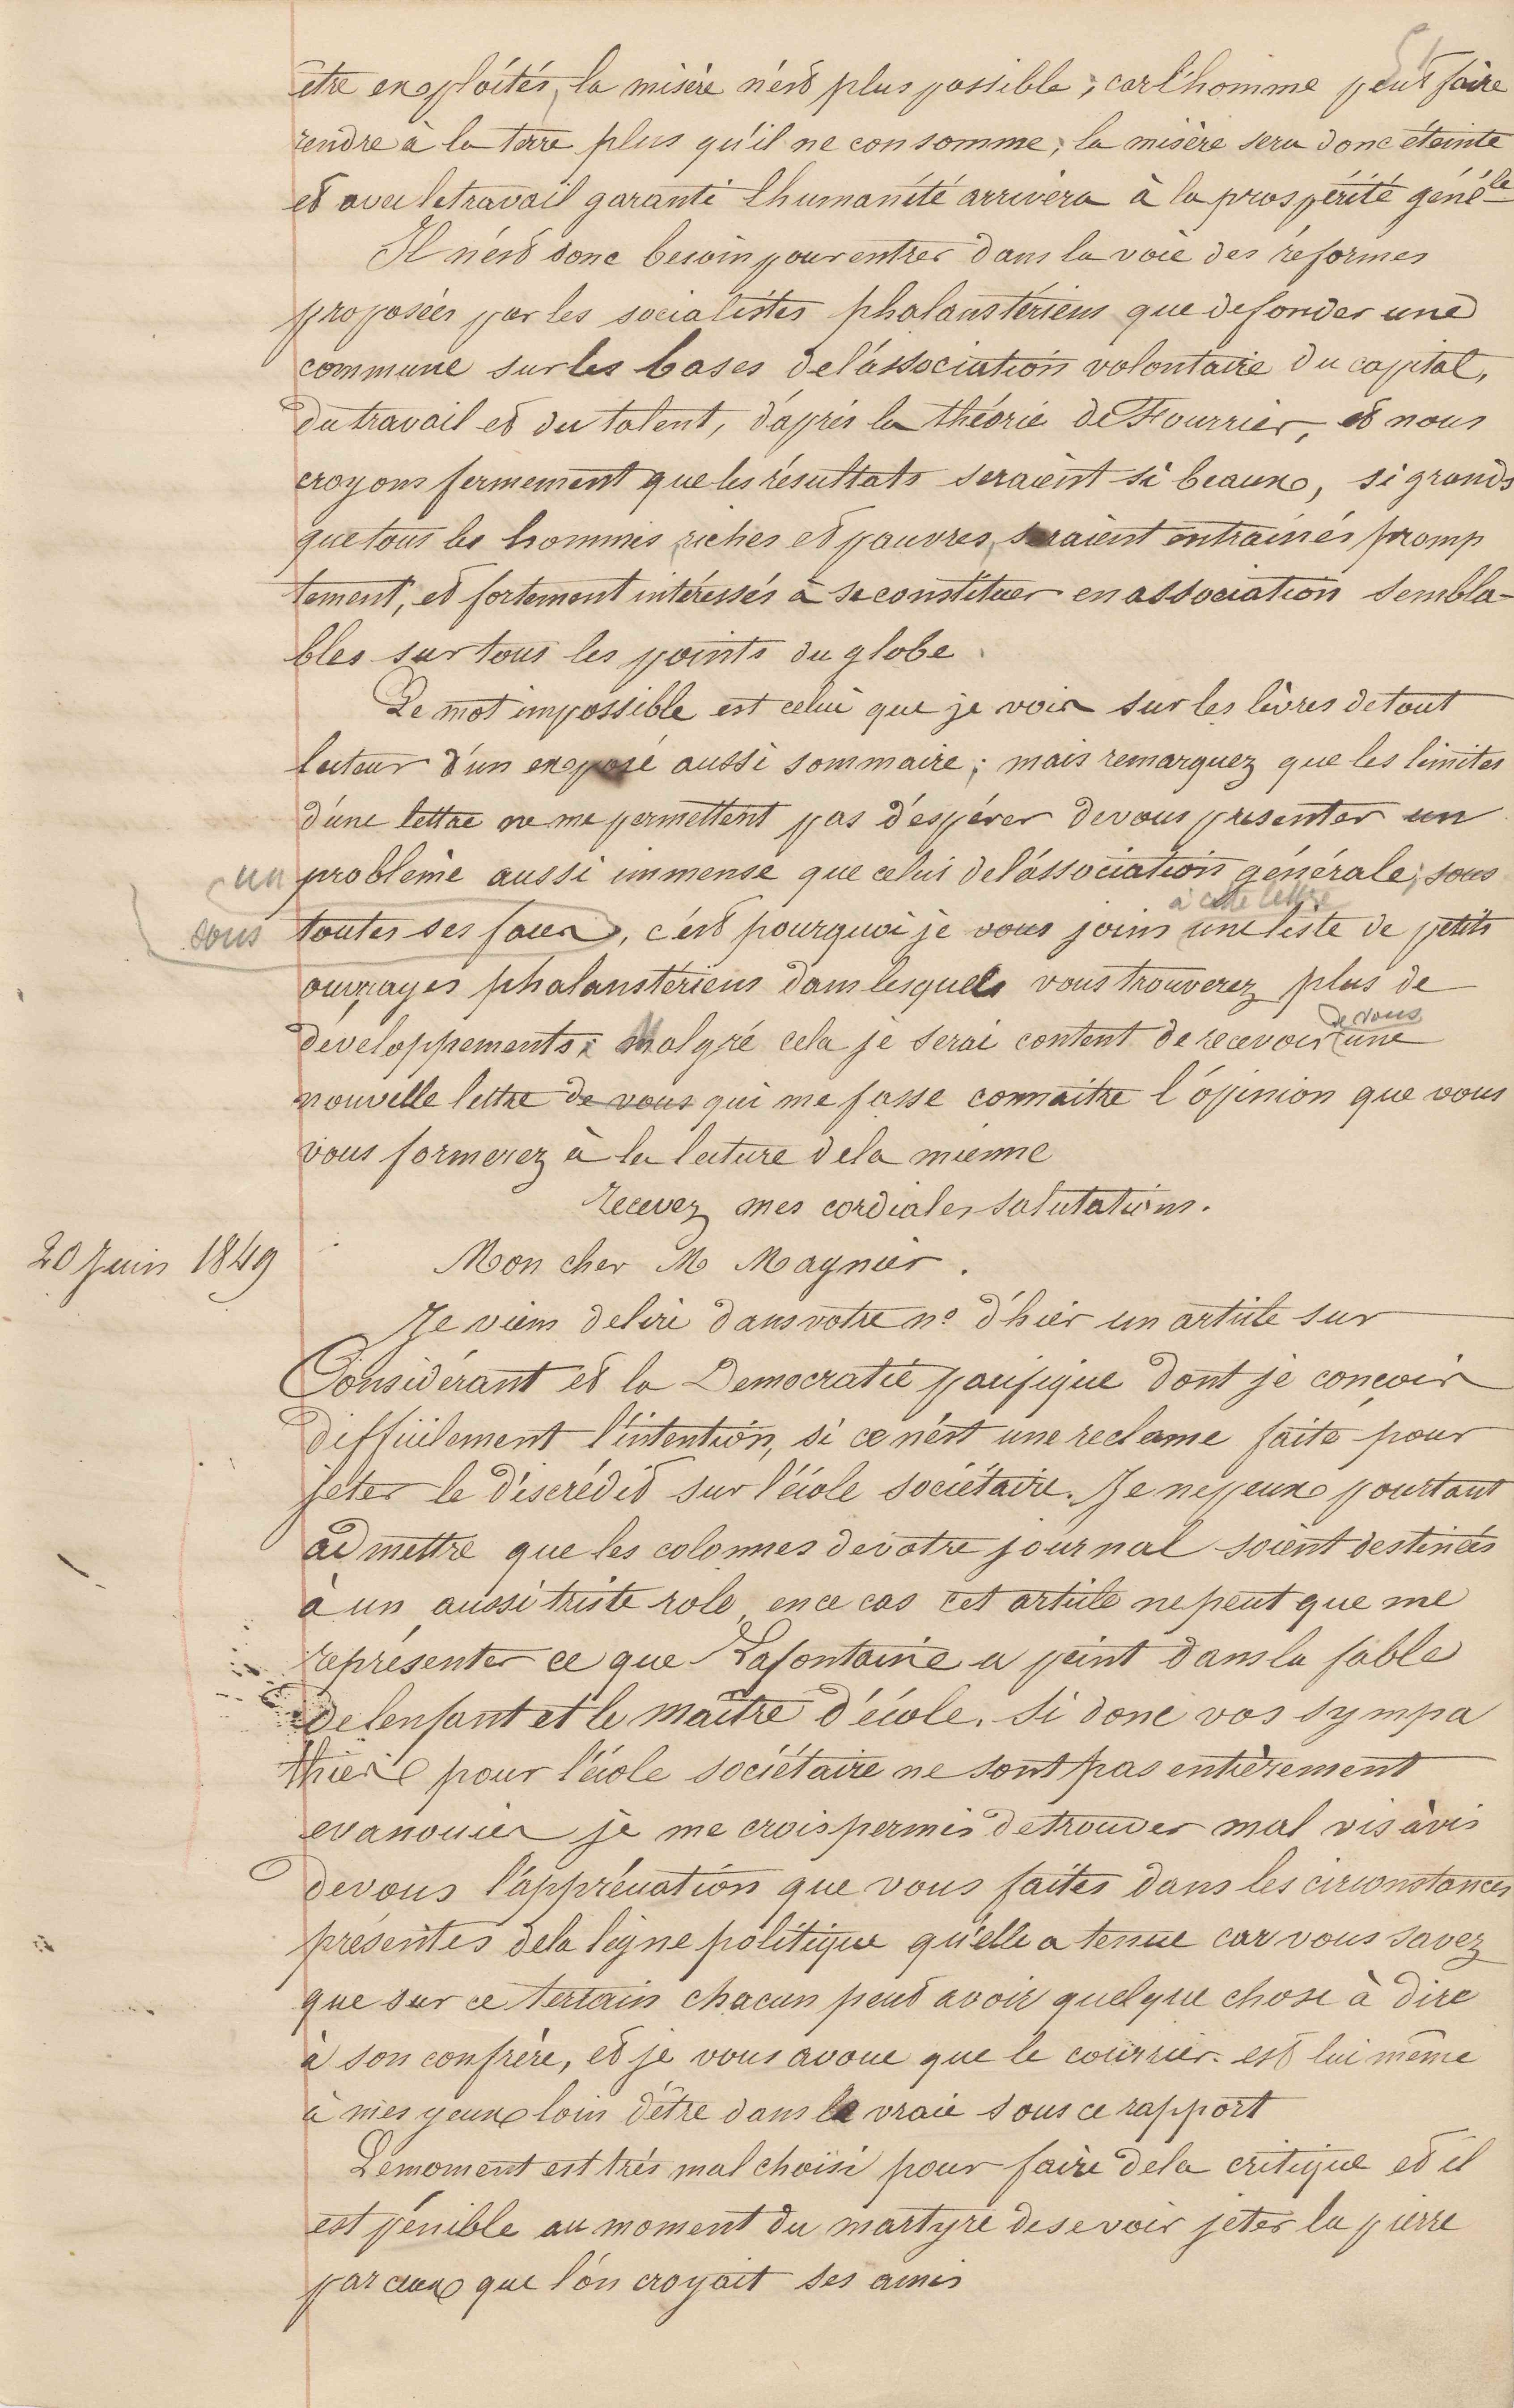 être exploités, la misère n'est plus possible; car l'homme peut faire
rendre à la terre plus qu'il ne consomme; la misère sera donc éteinte
et avec le travail garanti l'humanité arrivera à la prospérité génèle
Il n'est donc besoin pour entrer dans la voie des réformes
proposées par les socialistes phalanstériens que de fonder une
commune sur les bases de l'association volontaire du capital,
du travail et du talent, d'après la théorie de Fourrier, et nous
croyons fermement que les résultats seraient si beaux, si grands
que tous les hommes, riches et pauvres, seraient entrainés promp
tement, et fortement intéressés à se constituer en association sembla-
bles sur tous les points du globe.
Le mot impossible est celui que je vois sur les lèvres de tout
lecteur d'un exposé aussi sommaire; mais remarquez que les limites
d'une lettre ne me permettent pas d'espérer de vous présenter un
un problème aussi immense que celui de l'association générale; sous
à cette lettre
sous toutes ses faces, c'est pourquoi je vous joins une liste de petits
ouvrages phalanstériens dans lesquels vous trouverez plus de
de vous
développements; Malgré cela je serai content de recevoir une
nouvelle lettre de vous qui me fasse connaitre l'opinion que vous
vous formerez à la lecture de la mienne
recevez mes cordiales salutations.
20 Juin 1849
Mon cher M Magnier.
Je viens de lire dans votre no d'hier un article sur
Considérant et la Democratie pacifique dont je conçois
difficilement l'intention, si ce n'est une reclame faite pour
jeter le discrédit sur l'école sociétaire. Je ne peux pourtant
admettre que les colonnes de votre journal soient destinées
à un aussi triste role, en ce cas cet article ne peut que me
représenter ce que Lafontaine a peint dans la fable
de lenfant et le maître d'école. si donc vos sympa
thies pour l'école sociétaire ne sont pas entièrement
evanouies je me crois permis de trouver mal vis à vis
de vous l'appréciation que vous faites dans les circonstances
présentes de la ligne politique qu'elle a tenue car vous savez
que sur ce terrain chacun peut avoir quelque chose à dire
à son confrère, et je vous avoue que le courrier est lui même
à mes yeux loin d'être dans le vraie sous ce rapport
Le moment est très mal choisi pour faire de la critique et il
est pénible au moment du martyre de se voir jeter la pierre
par ceux que l'on croyait ses amis